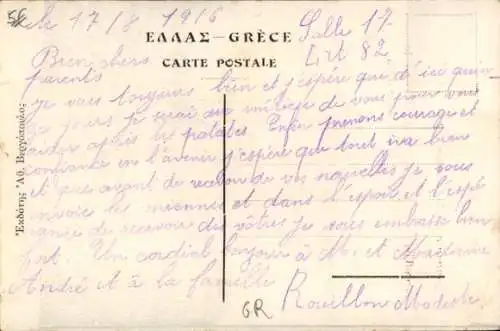 le 17/8 1916
Salle 17
Lit 82
ΕΛΛΑΣ – GRÈCE
CARTE POSTALE
Bien chers
parents
je vais toujours bien et j'espère que d'ici quin
ze jours je serai au milieu de vous pour vous
aider après les patates Enfin prenons courage et
confiance en l'avenir j'espère que tout ira bien
et que avant de recevoir de vos nouvelles je vous
envoie les miennes et dans l'espoir et l'espé
rance de recevoir des vôtres je vous embrasse bien
fort. Un cordial bonjour à M. et Madame
André et à la famille
Rouillon Modeste
GR
Ἐκδότης Ἀθ.